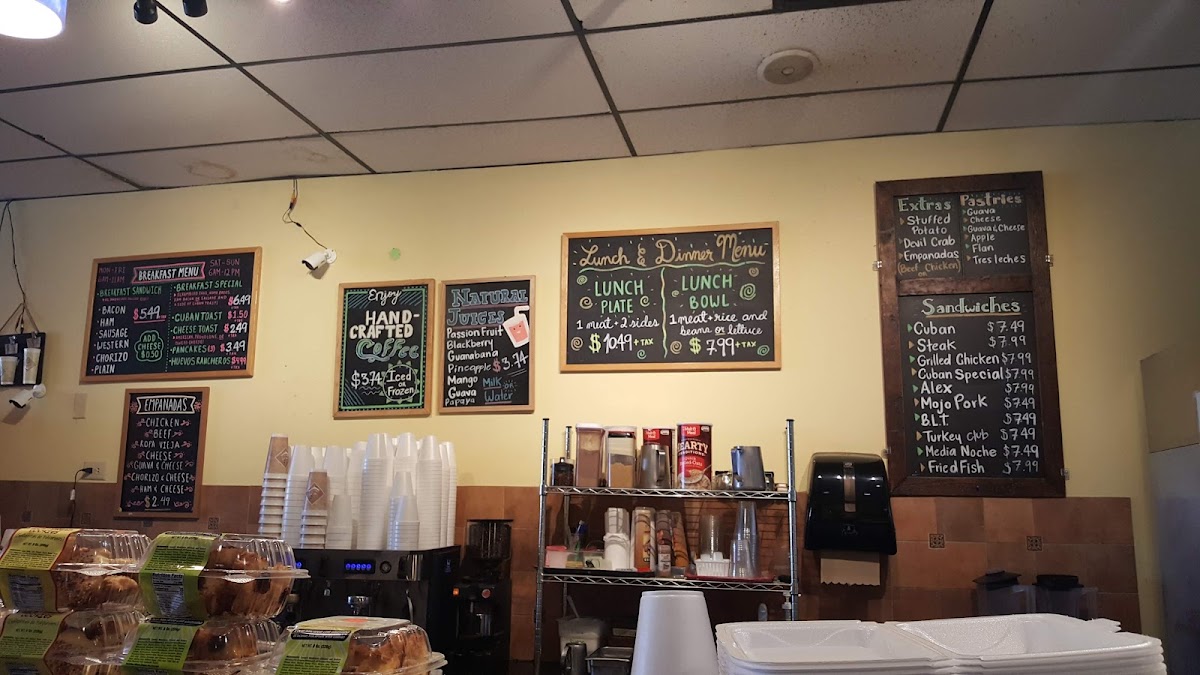 MON-FRI
6AM-11AM
BREAKFAST MENU
SAT-SUN
6AM-12PM
BREAKFAST SANDWICH
BACON
HAM
SAUSAGE
WESTERN
CHORIZO
PLAIN
$5.49
ADD
CHEESE
$0.50
BREAKFAST SPECIAL
$6.49
CUBAN TOAST $1.50
CHEESE TOAST $2.49
PANCAKES (3) $3.49
HUEVOS RANCHEROS
EMPANADAS
CHICKEN
BEEF
ROPA VIEJA
CHEESE
GUAVA & CHEESE
CHORIZO & CHEESE
HAM & CHEESE
$2.49
Enjoy
HAND-
CRAFTED
Coffee
$3.74
Iced
or
Frozen
Natural
Juices
Passion Fruit
Blackberry
Guanabana
Pineapple
Mango
Guava
Papaya
$3.74
Milk
or
Water
Lunch & Dinner Menu
LUNCH
PLATE
1 meat + 2 sides
$10.49 + TAX
LUNCH
BOWL
1 meat + rice and
beans or lettuce
$7.99 + TAX
Extras
Stuffed
Potato
Devil Crab
Empanadas
(Beef or Chicken)
Pastries
Guava
Cheese
Guava & Cheese
Apple
Flan
Tres leches
Sandwiches
Cuban $7.49
Steak $7.99
Grilled Chicken $7.99
Cuban Special $7.99
Alex $7.99
Mojo Pork $7.49
B.L.T. $7.49
Turkey club $7.49
Media Noche $7.49
Fried Fish $7.99